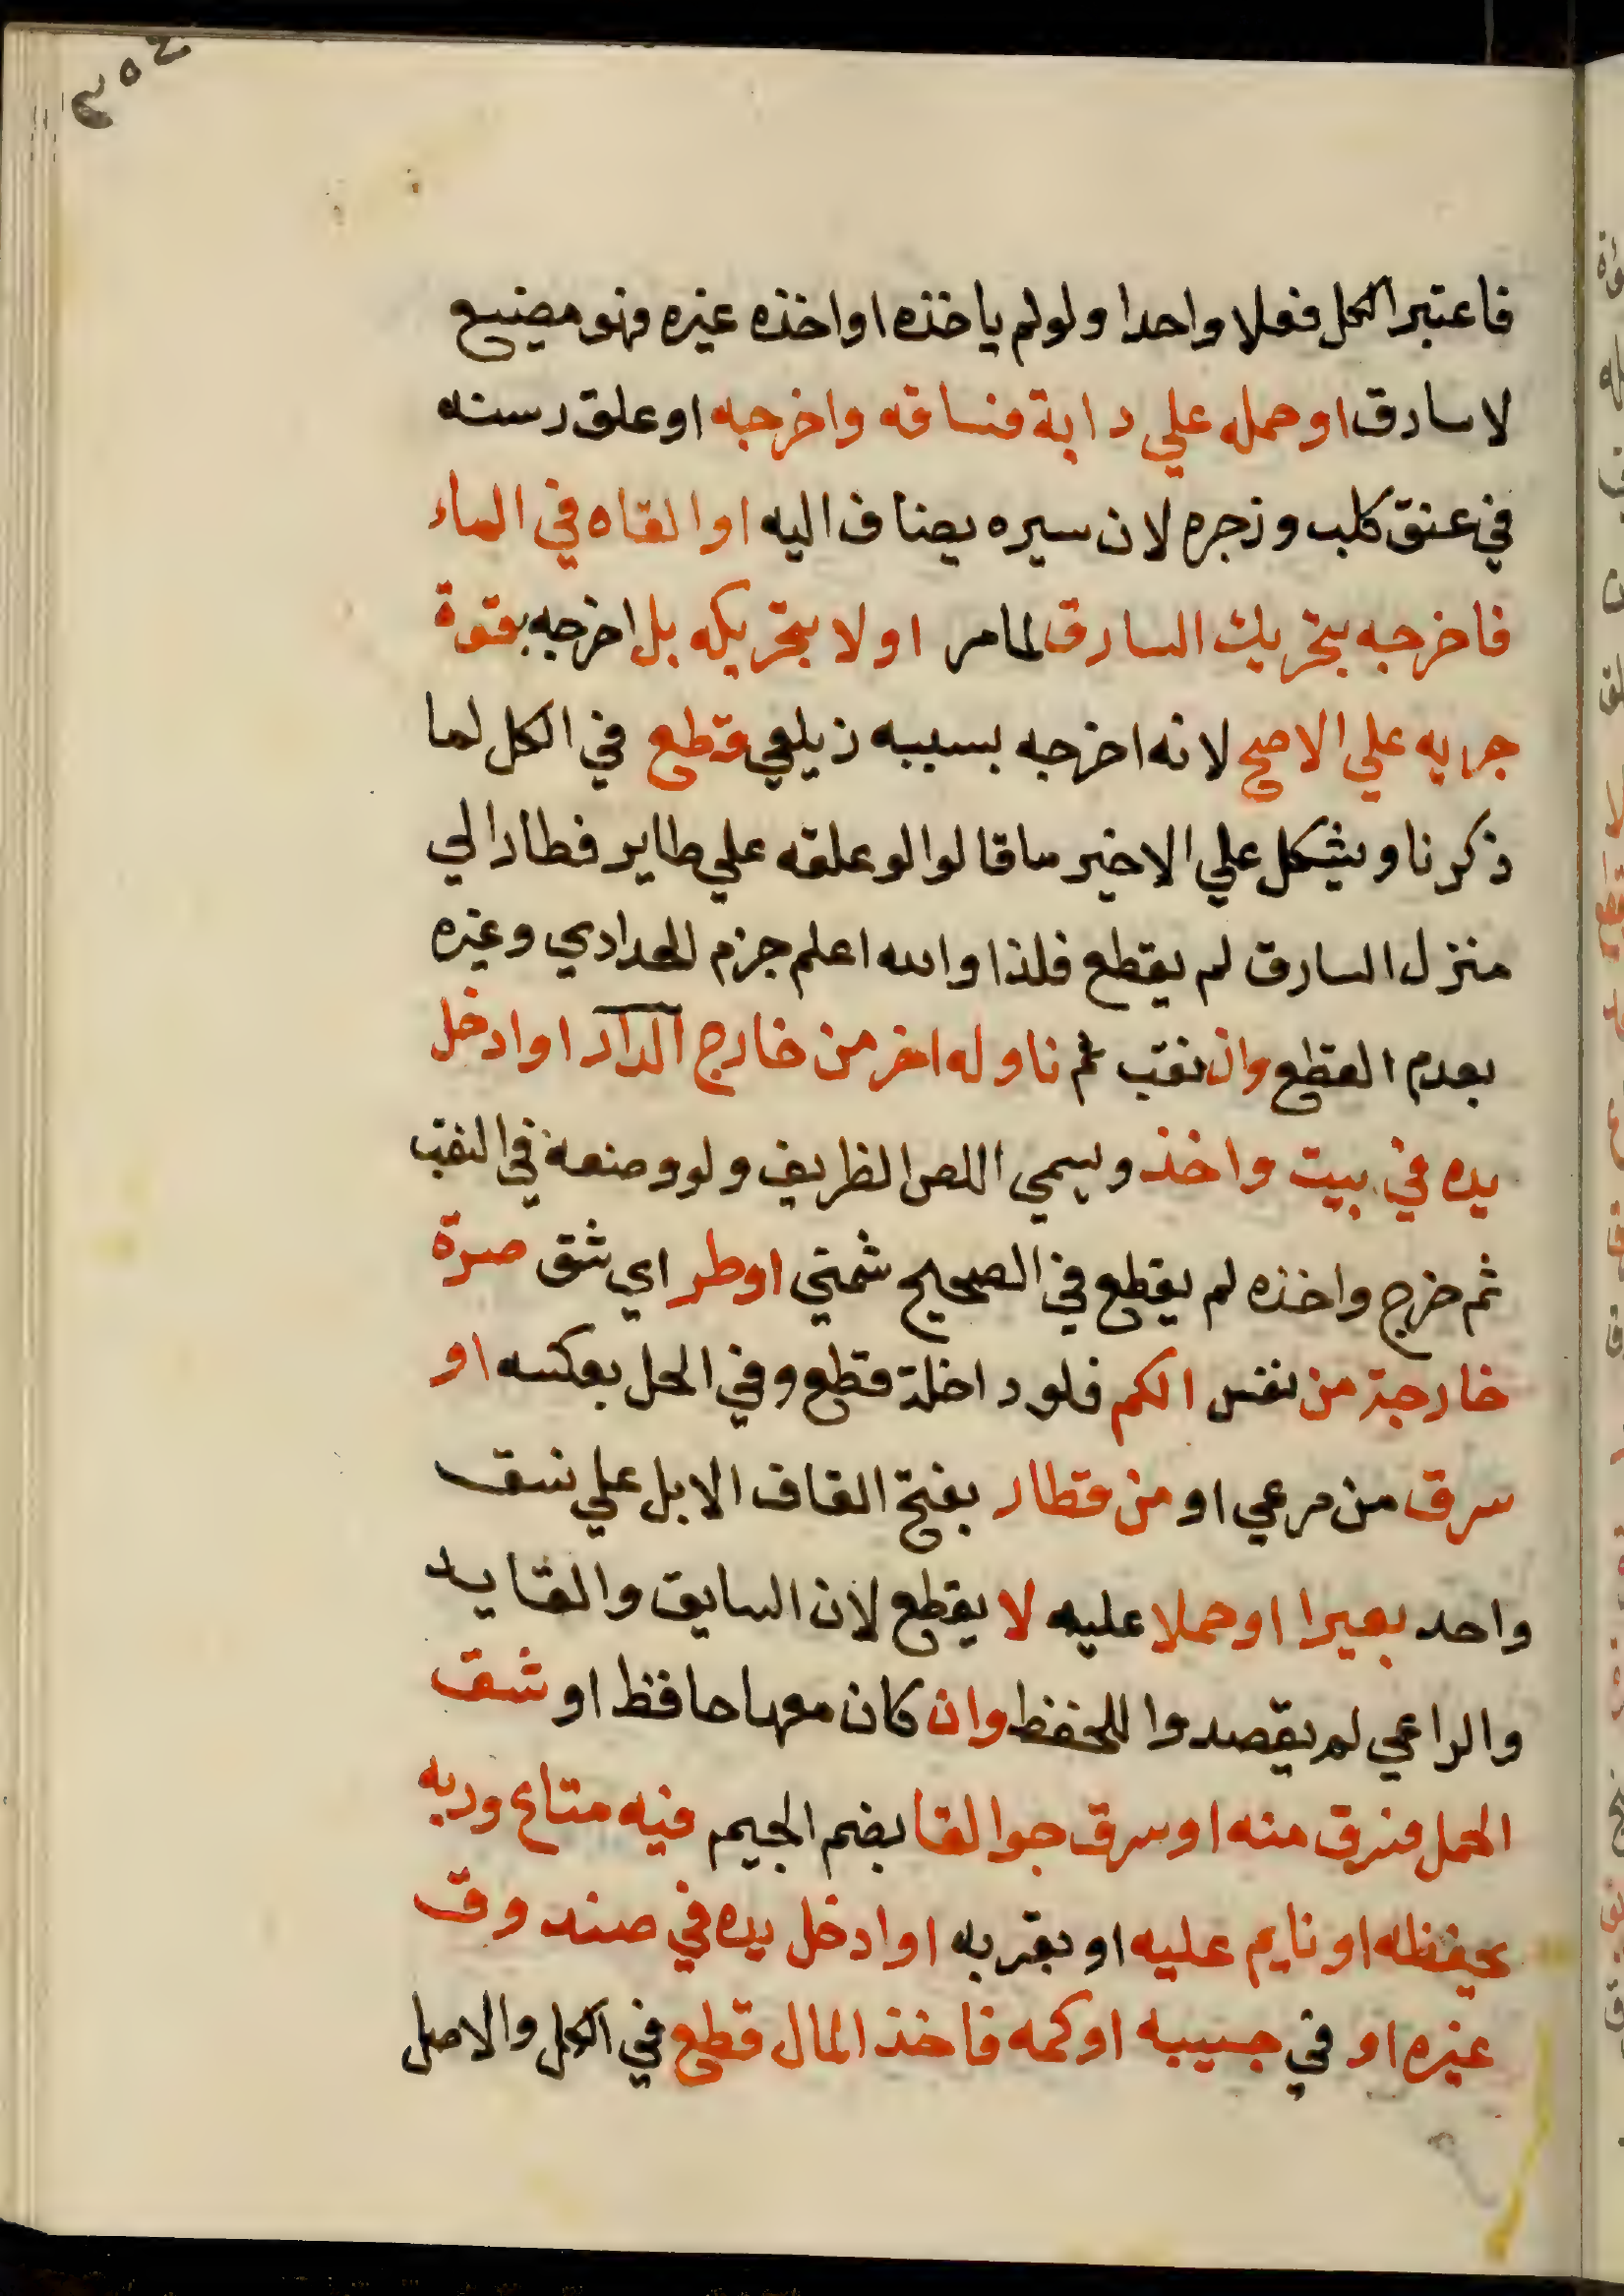 ٣٥٤
فاعتبر الكل فعلا واحدا ولو لم ياخذه او اخذه غيره فهو مضيع
لا سارق او حمله علي دابة فساقه واخرجه او علق رسنه
في عنق كلب وزجره لان سيره يضاف اليه او القاه في الماء
فاخرجه بتحريك السارق لما مر او لا بتحريكه بل اخرجه بقوة
جريه علي الاصح لانه اخرجه بسببه زيلعي قطع في الكل لما
ذكرنا ويشكل علي الاخير ما قالوا لو علقه علي طاير فطار الي
منزل السارق لم يقطع فلذا والله اعلم جزم الحدادي وغيره
بعدم القطع وان نقب ثم ناوله اخر من خارج الدار او ادخل
يده في بيت واخذ ويسمي اللص الظريف ولو وضعه في النقب
ثم خرج واخذه لم يقطع في الصحيح شمني او طر اي شق صرة
خارجة من نفس الكم فلو داخلة قطع وفي الحل بعكسه او
سرق من مرعي او من قطار بفتح القاف الابل علي نسق
واحد بعيرا او حملا عليه لا يقطع لان السايق والقايد
والراعي لم يقصدوا للحفظ وان كان معها حافظ او شق
الحمل فسرق منه او سرق جوالقا بضم الجيم فيه متاع وربه
يحفظه او نايم عليه او بقربه او ادخل يده في صندوق
غيره او في جيبه او كمه فاخذ المال قطع في الكل والاصل